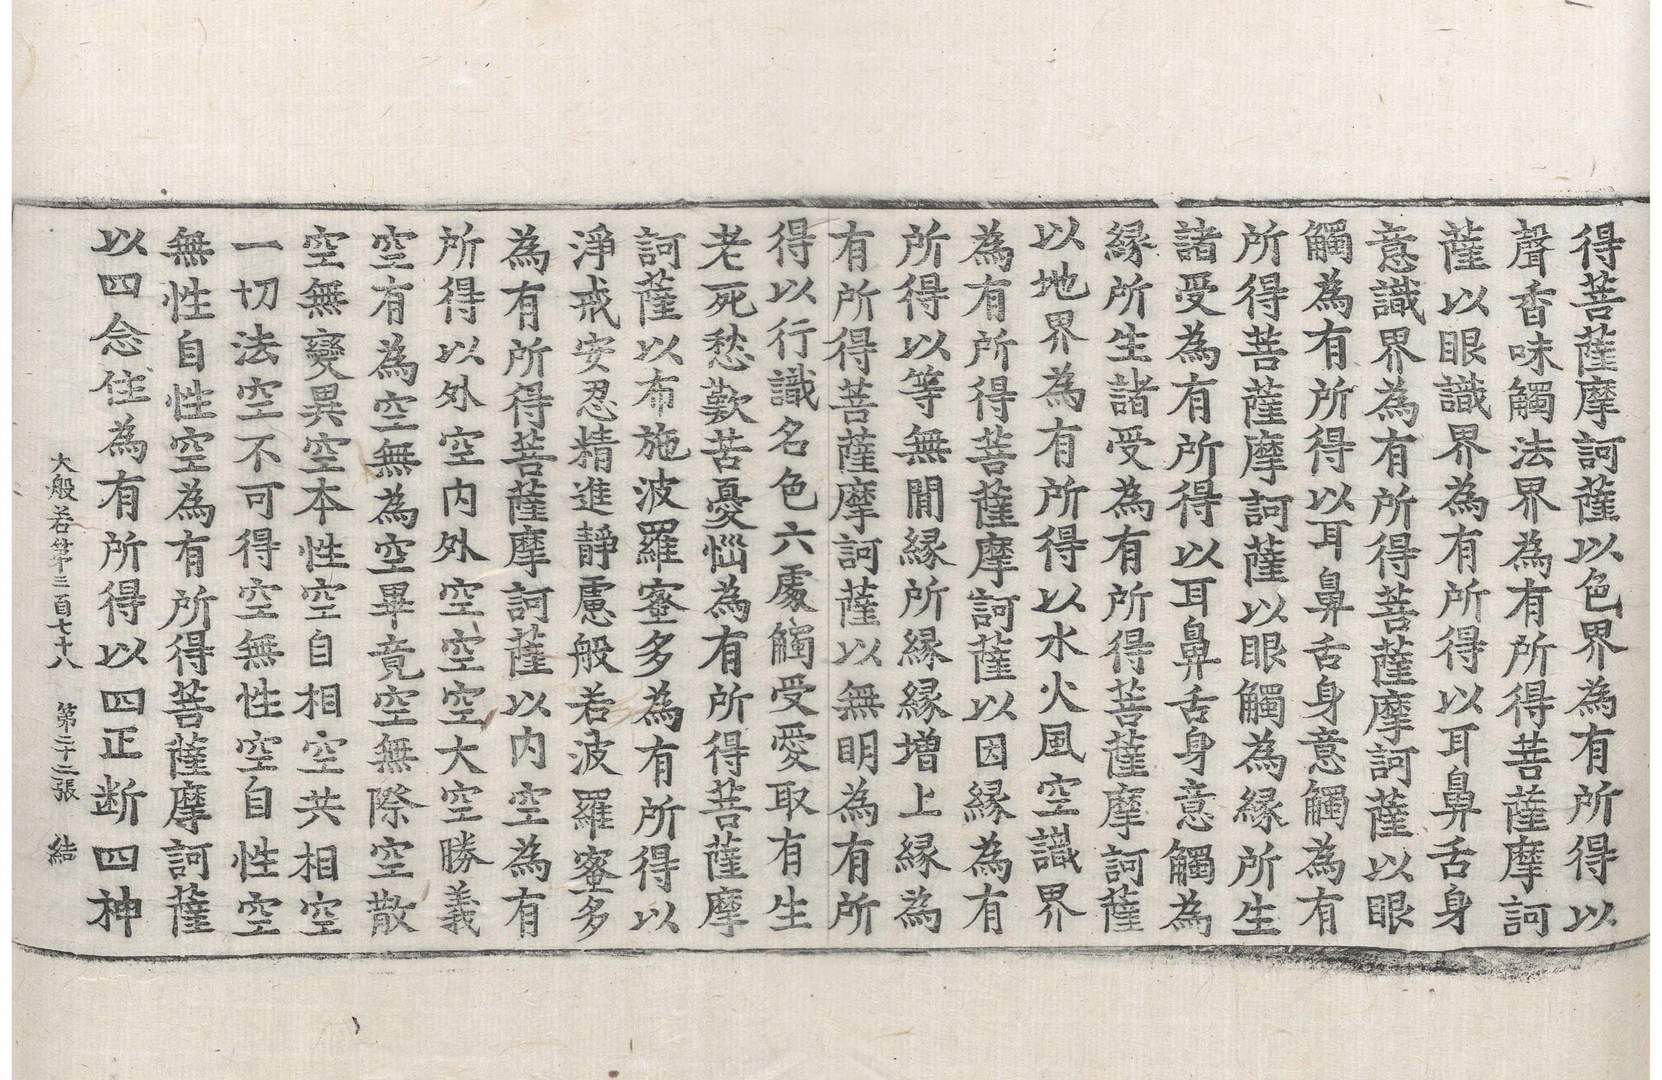 得菩薩摩訶薩以色界為有所得以
聲香味觸法界為有所得菩薩摩訶
薩以眼識界為有所得以耳鼻舌身
意識界為有所得菩薩摩訶薩以眼
觸為有所得以耳鼻舌身意觸為有
所得菩薩摩訶薩以眼觸為緣所生
諸受為有所得以耳鼻舌身意觸為
緣所生諸受為有所得菩薩摩訶薩
以地界為有所得以水火風空識界
為有所得菩薩摩訶薩以因緣為有
所得以等無間緣所緣緣增上緣為
有所得菩薩摩訶薩以無明為有所
得以行識名色六處觸受愛取有生
老死愁歎苦憂惱為有所得菩薩摩
訶薩以布施波羅蜜多為有所得以
淨戒安忍精進靜慮般若波羅蜜多
為有所得菩薩摩訶薩以内空為有
所得以外空内外空空空大空勝義
空有為空無為空畢竟空無際空散
空無變異空本性空自相空共相空
一切法空不可得空無性空自性空
無性自性空為有所得菩薩摩訶薩
以四念住為有所得以四正断四神
大般若第三百七十八 第二十二張 結